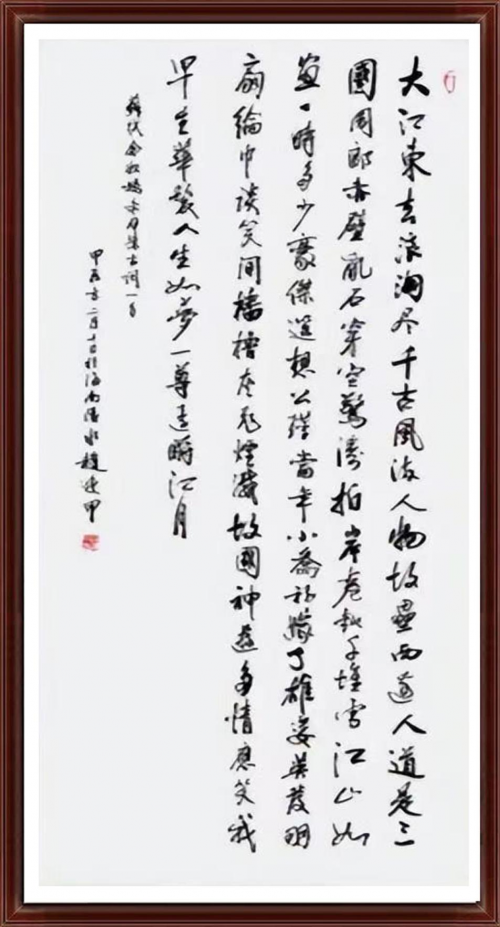 大江東去浪淘尽千古風流人物故壘西邊人道是三
國周郎赤壁亂石穿空驚濤拍岸卷起千堆雪江山如
畫一時多少豪傑遥想公瑾當年小喬初嫁了雄姿英發羽
扇綸巾談笑間檣櫓灰飛煙滅故國神遊多情應笑我
早生華髮人生如夢一尊還酹江月
蘇軾念奴嬌赤壁懷古詞一首
甲辰年二月十日於海南陵水趙甲